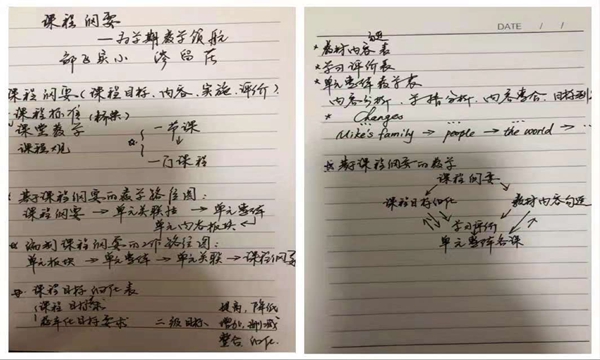 课程纲要
——为学期教学领航
课程纲要(课程目标、内容、实施、评价)
课程标准(桥梁)
课堂教学
一节课
课程观
一门课程
基于课程纲要的教学路径图:
课程纲要 → 单元关联性 → 单元整体
单元内容板块
编制课程纲要的路径图:
单元板块 → 单元整体 → 单元关联 → 课程纲要
课程目标细化表
课程目标
二级目标
提高、降低
增加、删减
整合、细化
DATE / /
* 教材内容表
* 学习评价表
* 单元整体教学表
内容分析、学情分析、内容整合、目标
* Changes
Mike's family → people → the world →
基于课程纲要的教学
课程纲要
课程目标细化
教材内容勾连
学习评价
单元整体备课